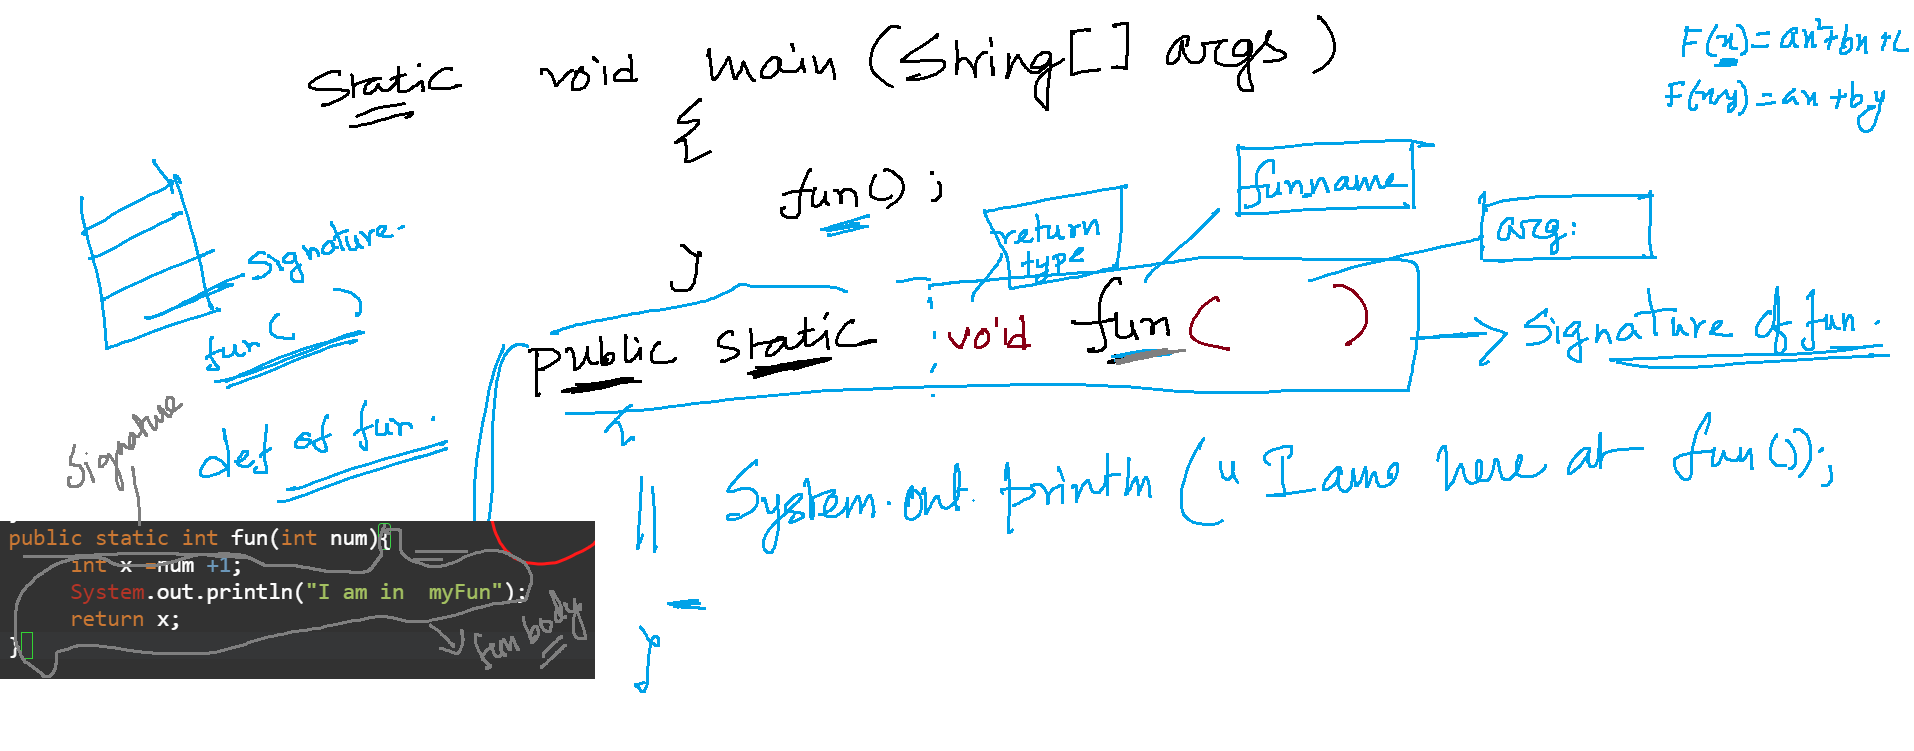 static void main (String[] args)
{
fun();
}
F(x) = ax²+bx+c
F(x,y) = ax+by
return type
funname
arg:
Signature.
fun( )
public static void fun( )
Signature of fun.
def of fun.
{
System.out.println("I am here at fun());
}
Signature
public static int fun(int num){
int x =num +1;
System.out.println("I am in  myFun");
return x;
}
fun body